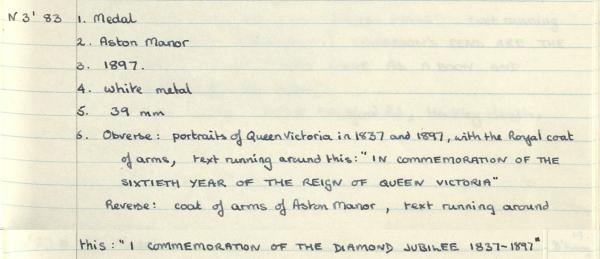 N3'83 1. Medal
2. Aston Manor
3. 1897.
4. white metal
5. 39 mm
6. Obverse: portraits of Queen Victoria in 1837 and 1897, with the Royal coat
of arms, text running around this: "IN COMMEMORATION OF THE
SIXTIETH YEAR OF THE REIGN OF QUEEN VICTORIA"
Reverse: coat of arms of Aston Manor, text running around
this: "I COMMEMORATION OF THE DIAMOND JUBILEE 1837-1897"